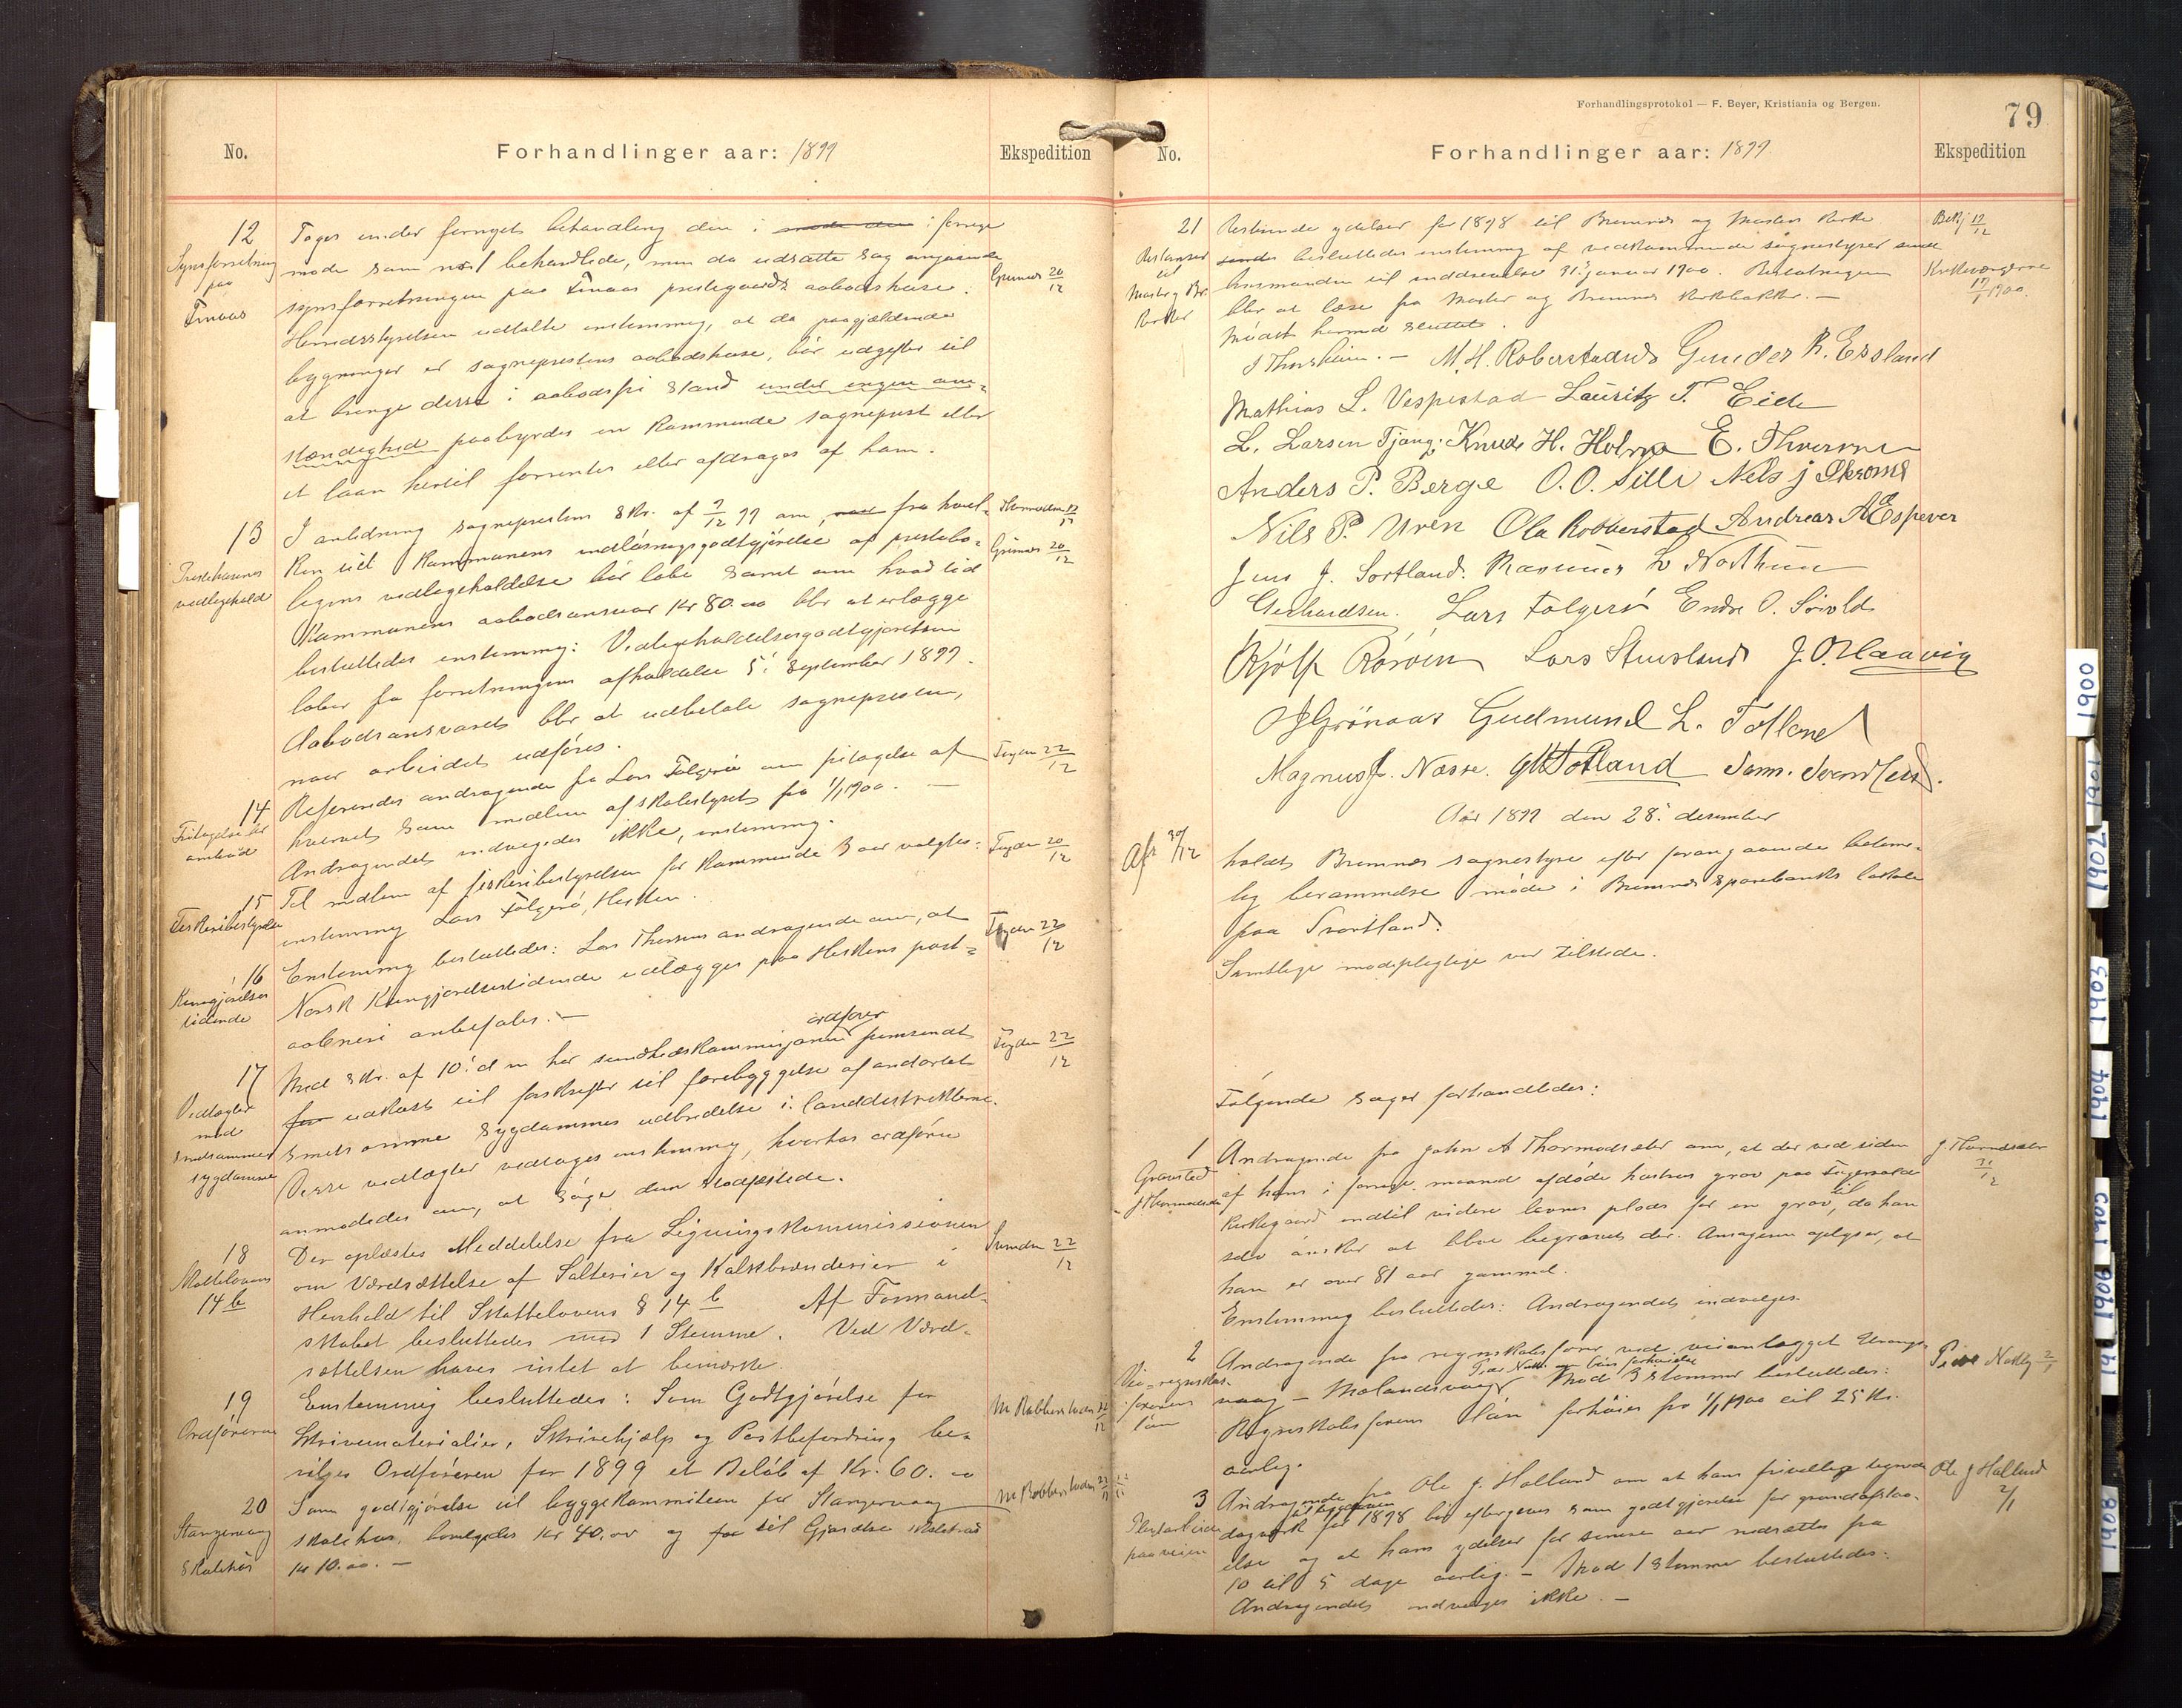 No.
Forhandlinger aar: 1899
Ekspedition
12
Synsforretning
paa
Finaas
Toges under fornyet behandling den i forrige
møde som no 1 behandlede, men da udsatte sag angaaende
synsforretningen paa Finaas prestegaards aabodshuse.
Herredsstyrelsen udtalte enstemmig, at da paagjældende
bygninger er sogneprestens aabodshuse, bør udgifter til
at bringe disse i aabodsfri stand under ingen om-
stændighed paabyrdes en kommende sogneprest eller
et laan hertil forrentes eller afdrages af ham.
Grimnes 20/12
13
Prestehusenes
vedligehold
I anledning sogneprestens skr. af 7/12 99 om, fra hvil-
ken tid kommunens indløsningsgodtgjørelse af prestebo-
ligens vedligeholdelse bør løbe samt om hvad tid
kommunens aabodsansvar kr 80.00 blir at erlægge
besluttedes enstemmig: Vedligeholdelsesgodtgjørelsen
løber fra forretningens afholdelse 5. september 1899.
Aabodsansvaret blir at udbetale sognepresten,
naar arbeidet udføres.
Grimnes 20/12
14
Fritagelse for
ombud
Refereredes andragende fra Lars Folgerø om fritagelse af
hvervet som medlem af skolestyret fra 1/1 1900. —
Andragendet indvilgedes ikke, enstemmig.
22/12
15
Fiskeribestyrelse
Til medlem af fiskeribestyrelsen for kommende 3 aar valgtes:
enstemmig Lars Folgerø, Hisken.
20/12
16
Kungjørelses
tidende
Enstemmig besluttedes: Lars Thorsens andragende om, at
Norsk Kungjørelsestidende udlægges paa Hiskens post-
aabneri anbefales. —
22/12
17
Vedtægter
mod
smitsomme
sygdomme
Med skr. af 10. d m har sundhedskommisjonens ordfører fremsendt
udkast til forskrifter til forebyggelse af ondartet
smitsomme sygdommes udbredelse i landdistrikterne.
Disse vedtægter vedtoges enstemmig, hvorhos ordføren
anmodedes om, at søge dem stadfæstede.
22/12
18
14 b
Der oplæstes Meddelelse fra Ligningskommissionen
om Værdsættelse af Salterier og Kalkbrænderier i
Henhold til Skattelovens § 14 b Af Formand-
skabet besluttedes mod 1 Stemme. Ved Værd-
sættelsen haves intet at bemærke.
22/12
19
Ordføreren
Enstemmig besluttedes: Som Godtgjørelse for
Skrivematerialier, Skrivehjælp og Postbefordring be-
vilges Ordføreren for 1899 et Beløb af Kr. 60.00
M Robberstaden 22/12
20
Stangervaag
skolehus
Som godtgjørelse til byggekommiteen for Stangervaag
skolehus, bevilgedes kr 40.00 og til Gjerdelse skolekreds
kr 10.00. —
M Robberstaden
Forhandlingsprotokol — F. Beyer, Kristiania og Bergen.
79
No.
Forhandlinger aar: 1899
Ekspedition
21
Restanser
til
Moster og Br.
kirker
Restende ydelser for 1898 til Bremnes og Mosters kirke
besluttedes enstemmig af vedkommende sognestyrer sendt
lensmanden til inddrivelse 31. januar 1900. Beslutningen
blir at læse fra Moster og Bremnes kirkebakke. —
Mødet hermed sluttet.
Bekj 19/12
Kirkeværgerne
17/1 1900.
J Thorsheim. — M. H. Roberstadnes Gunder R. Essland
Mathias L. Vespestad Lauritz T. Eide
L. Larsen Tjong. Knud H. Holme E. Thuermer
Anders P. Berge O. O. Lille Nels j Økroms
Nils P. Uren Ola Robberstad Andreas A Espever
Jens J. Sortland. Rasmus L Northun
Gerhardsen. Lars Folgerø Endre O. Sørvold
Kjølf Rørøen Lars Stuesland J. O. Haavig
Grönaas Gudmund L. Totland
Magnus J. Næsse. Totland
Aar 1899 den 28. desember
Afs 30/12
holdt Bremnes sognestyre efter forangaaende beleme-
lig berammelse møde i Bremnes sparebanks lokale
paa Svortland.
Samtlige mødepligtige var tilstede.
Følgende sager forhandledes:
1
Gravsted
J Thormodsæter
Andragende fra John A Thormodsæter om, at der ved siden
af hans i forrige maaned afdøde hustrus grav paa
kirkegaard indtil videre levnes plads for en grav til, da han
selv ønsker at blive begravet der. Ansøgeren oplyser, at
han er over 81 aar gammel.
Enstemmig besluttedes: Andragendet indvilges.
2
Vei-regnskabs-
førerens
løn
Andragende fra regnskabsfører ved veianlægget Urang-
vaag – Mælandsvaag Peder Nøkle om løns forhøielse Mod 3 stemmer besluttedes:
Regnskabsførerens løn forhøies fra 1/1 1900 til 25 kr.
aarlig.
Peder Nøkling 2/1
3
Pligtarbeide
paa veien
Andragende fra Ole J. Halland om at hans frivillige tegnede
dagværk for 1898 bør eftergives som godtgjørelse for grundafstaa-
else og at hans ydelser for senere aar nedsættes fra
10 til 5 dage aarlig. – Mod 1 stemme besluttedes:
Andragendet indvilges ikke. —
Ole J Halland
2/1
1900
1901
1902
1903
1904
1905
1906
1907
1908